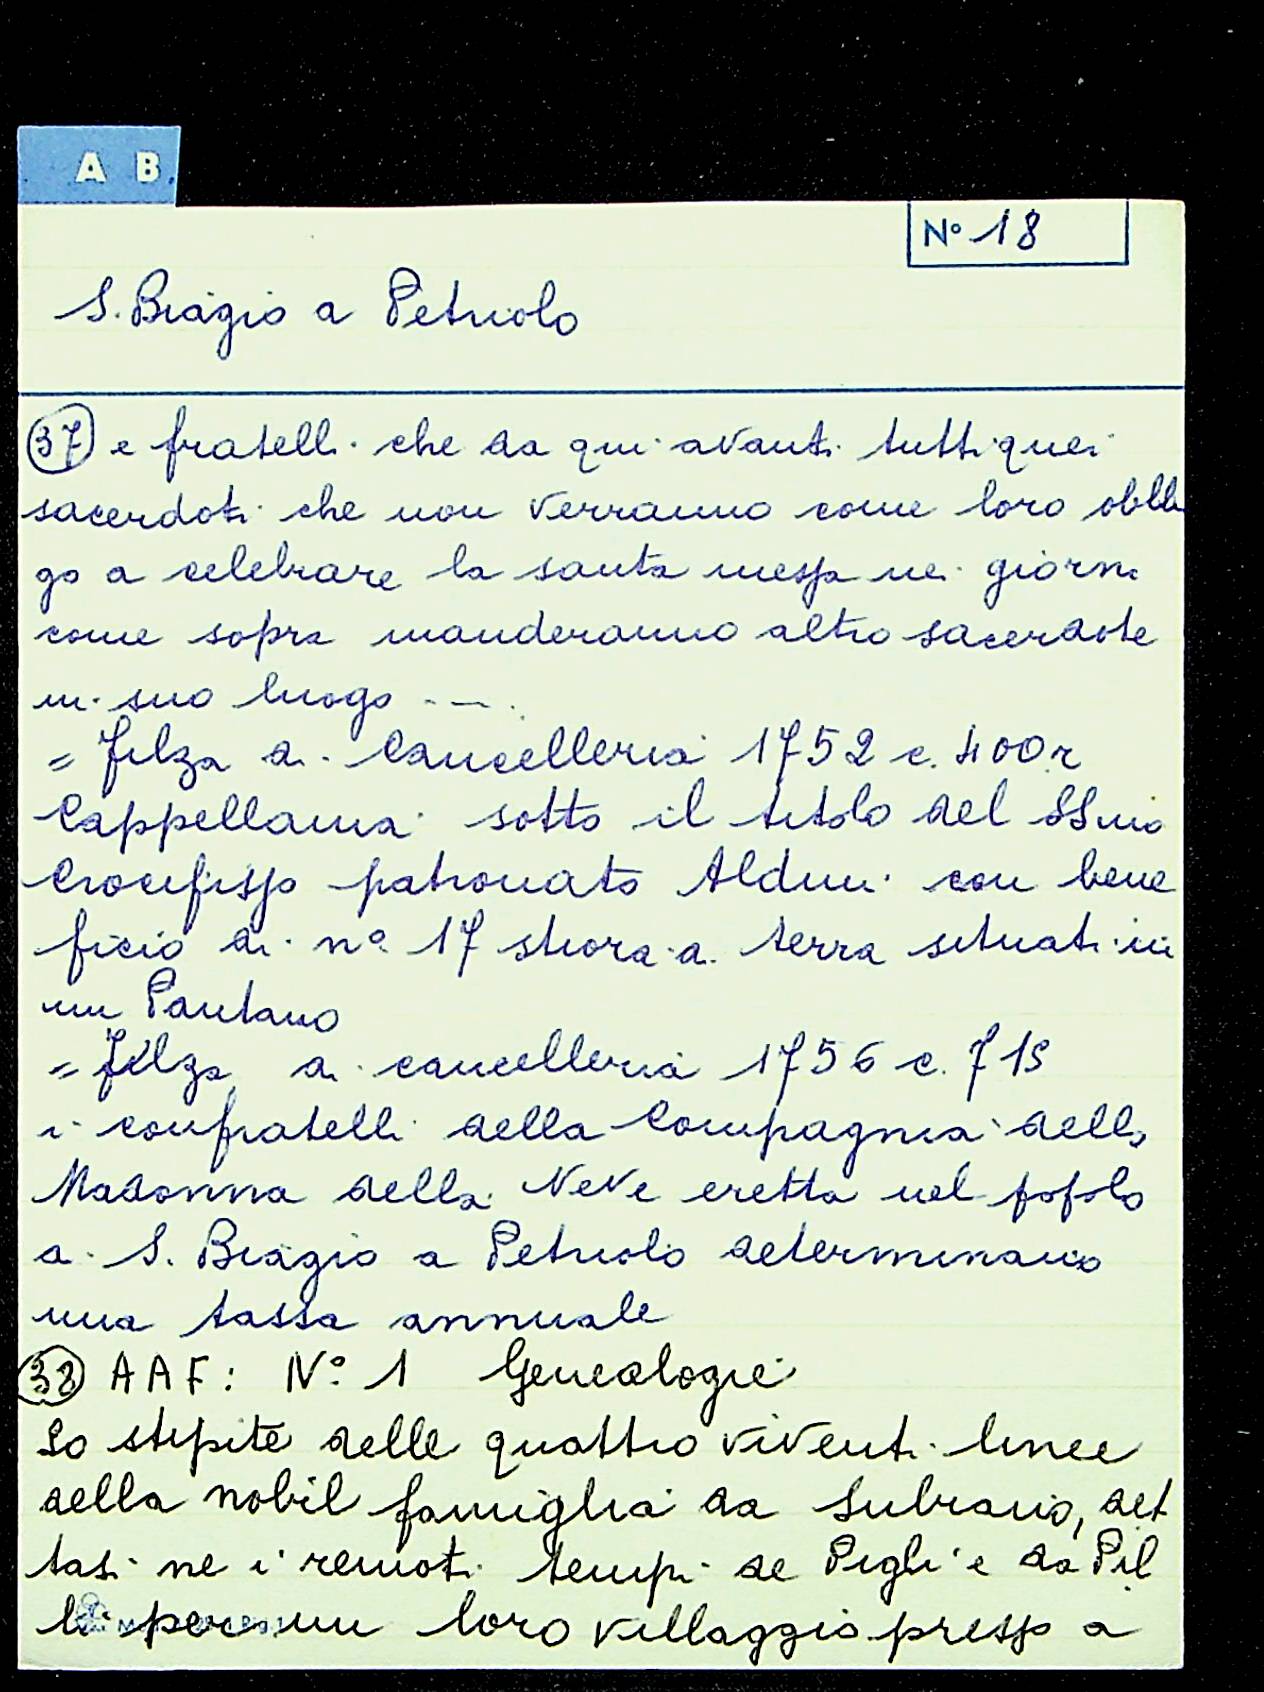 A B
N° 18
S. Biagio a Petriolo
37 e fratelli che da qui avanti tutti quei
sacerdoti che non verranno come loro obbli
go a celebrare la santa messa nei giorni
come sopra manderanno altro sacerdote
in suo luogo ---.
= Filza di Cancelleria 1752 c. 400r
Cappellania sotto il titolo del SSmo
Crocifisso patronato Alduini con bene
ficio di n° 17 stiora di terra situati in
un Pantano
= Filza di cancelleria 1756 c. 715
i confratelli della Compagnia della
Madonna della Neve eretta nel popolo
di S. Biagio a Petriolo determinano
una tassa annuale
38 AAF: N° 1 Genealogie
Lo stipite delle quattro viventi linee
della nobil famiglia da Subriano, det
tasi ne i remoti tempi de Pigli e da Pil
li per un loro villaggio presso a